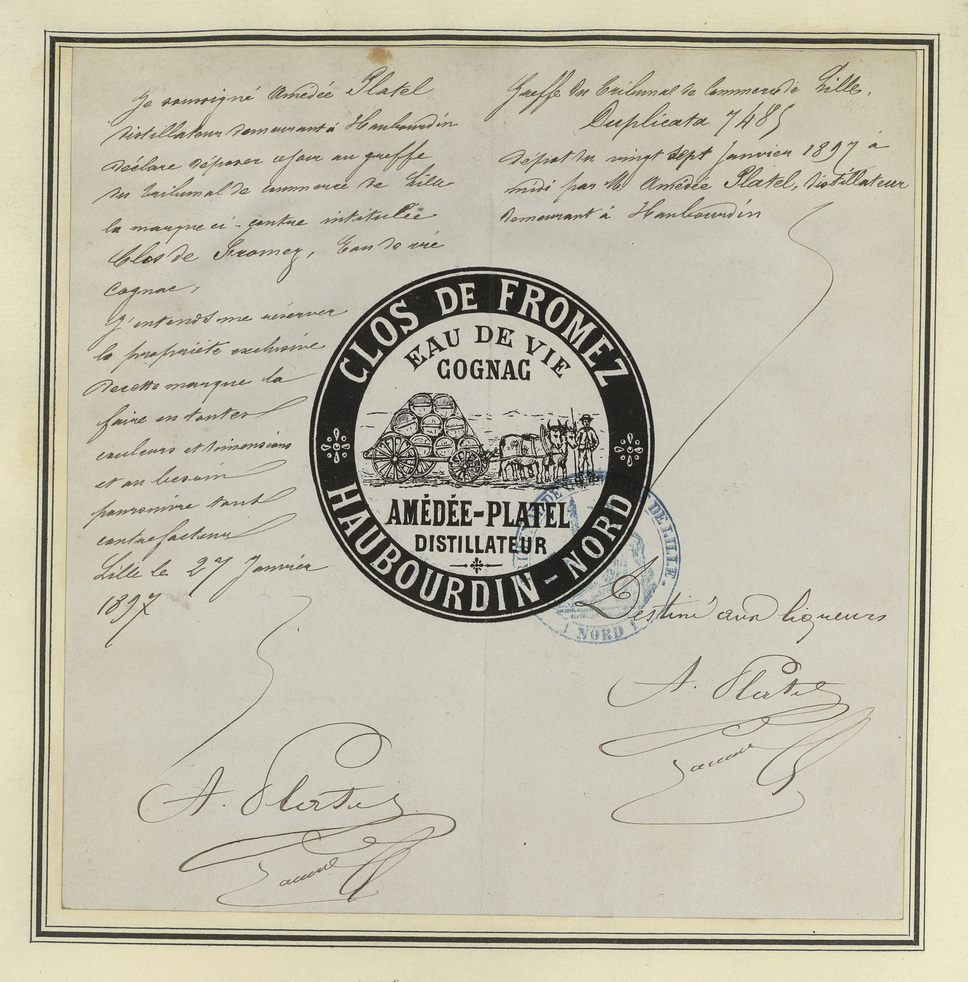 Je soussigné Amedée Platel
distillateur demeurant à Haubourdin
déclare déposer ce jour au greffe
du tribunal de commerce de Lille
la marque ci-contre intitulée
Clos de Fromez, Eau de vie
Cognac,
J'entends me réserver
la propriété exclusive
de cette marque la
faire en toutes
couleurs et dimensions
et au besoin
poursuivre tout
contrefacteur
Lille le 27 Janvier
1897
A. Platel
Greffe du Tribunal de Commerce de Lille.
Duplicata 7485
dépôt du vingt sept Janvier 1897 à
midi par M Amédée Platel, distillateur
demeurant à Haubourdin
CLOS DE FROMEZ
EAU DE VIE
COGNAC
AMÉDÉE-PLATEL
DISTILLATEUR
HAUBOURDIN-NORD
DE LILLE
NORD
Destiné aux liqueurs
A. Platel